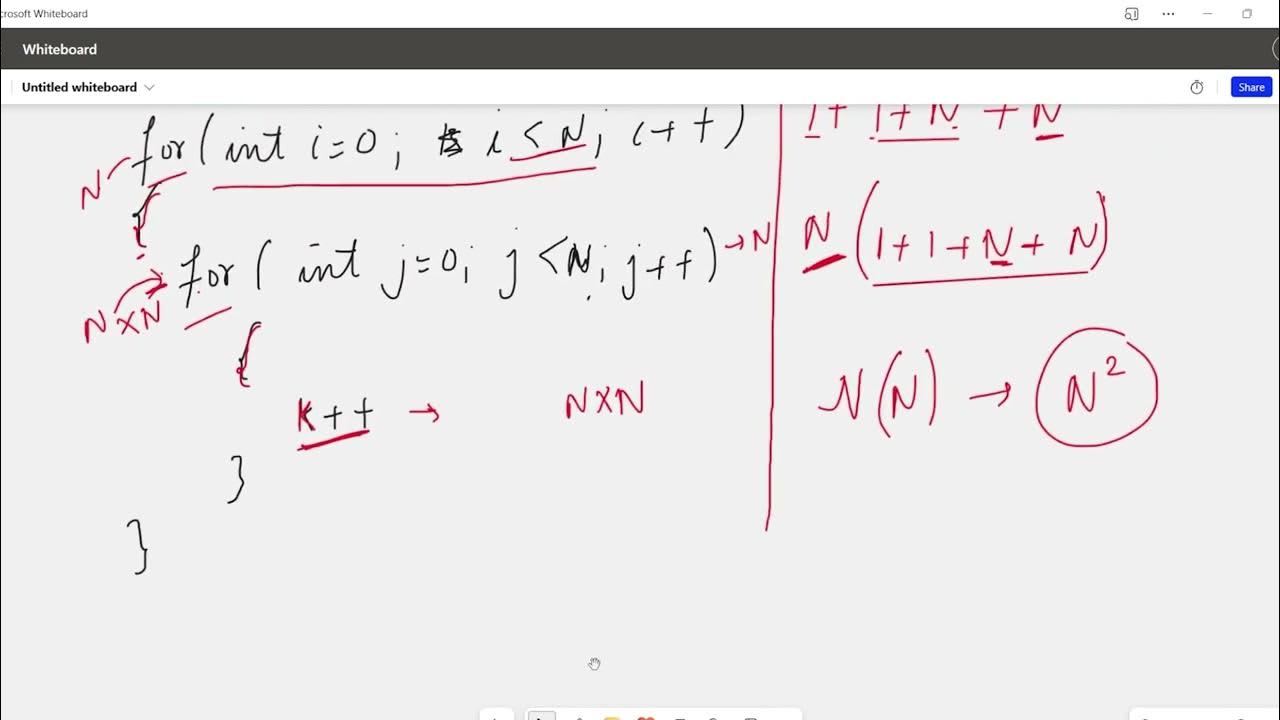 crosoft Whiteboard
Whiteboard
Untitled whiteboard
Share
for( int i=0; i<N; i++)
1+ 1+N +N
N
for( int j=0; j<N; j++) →N
N(1+1+N+N)
N×N
{
{
K++ → N×N
N(N) → N²
}
}